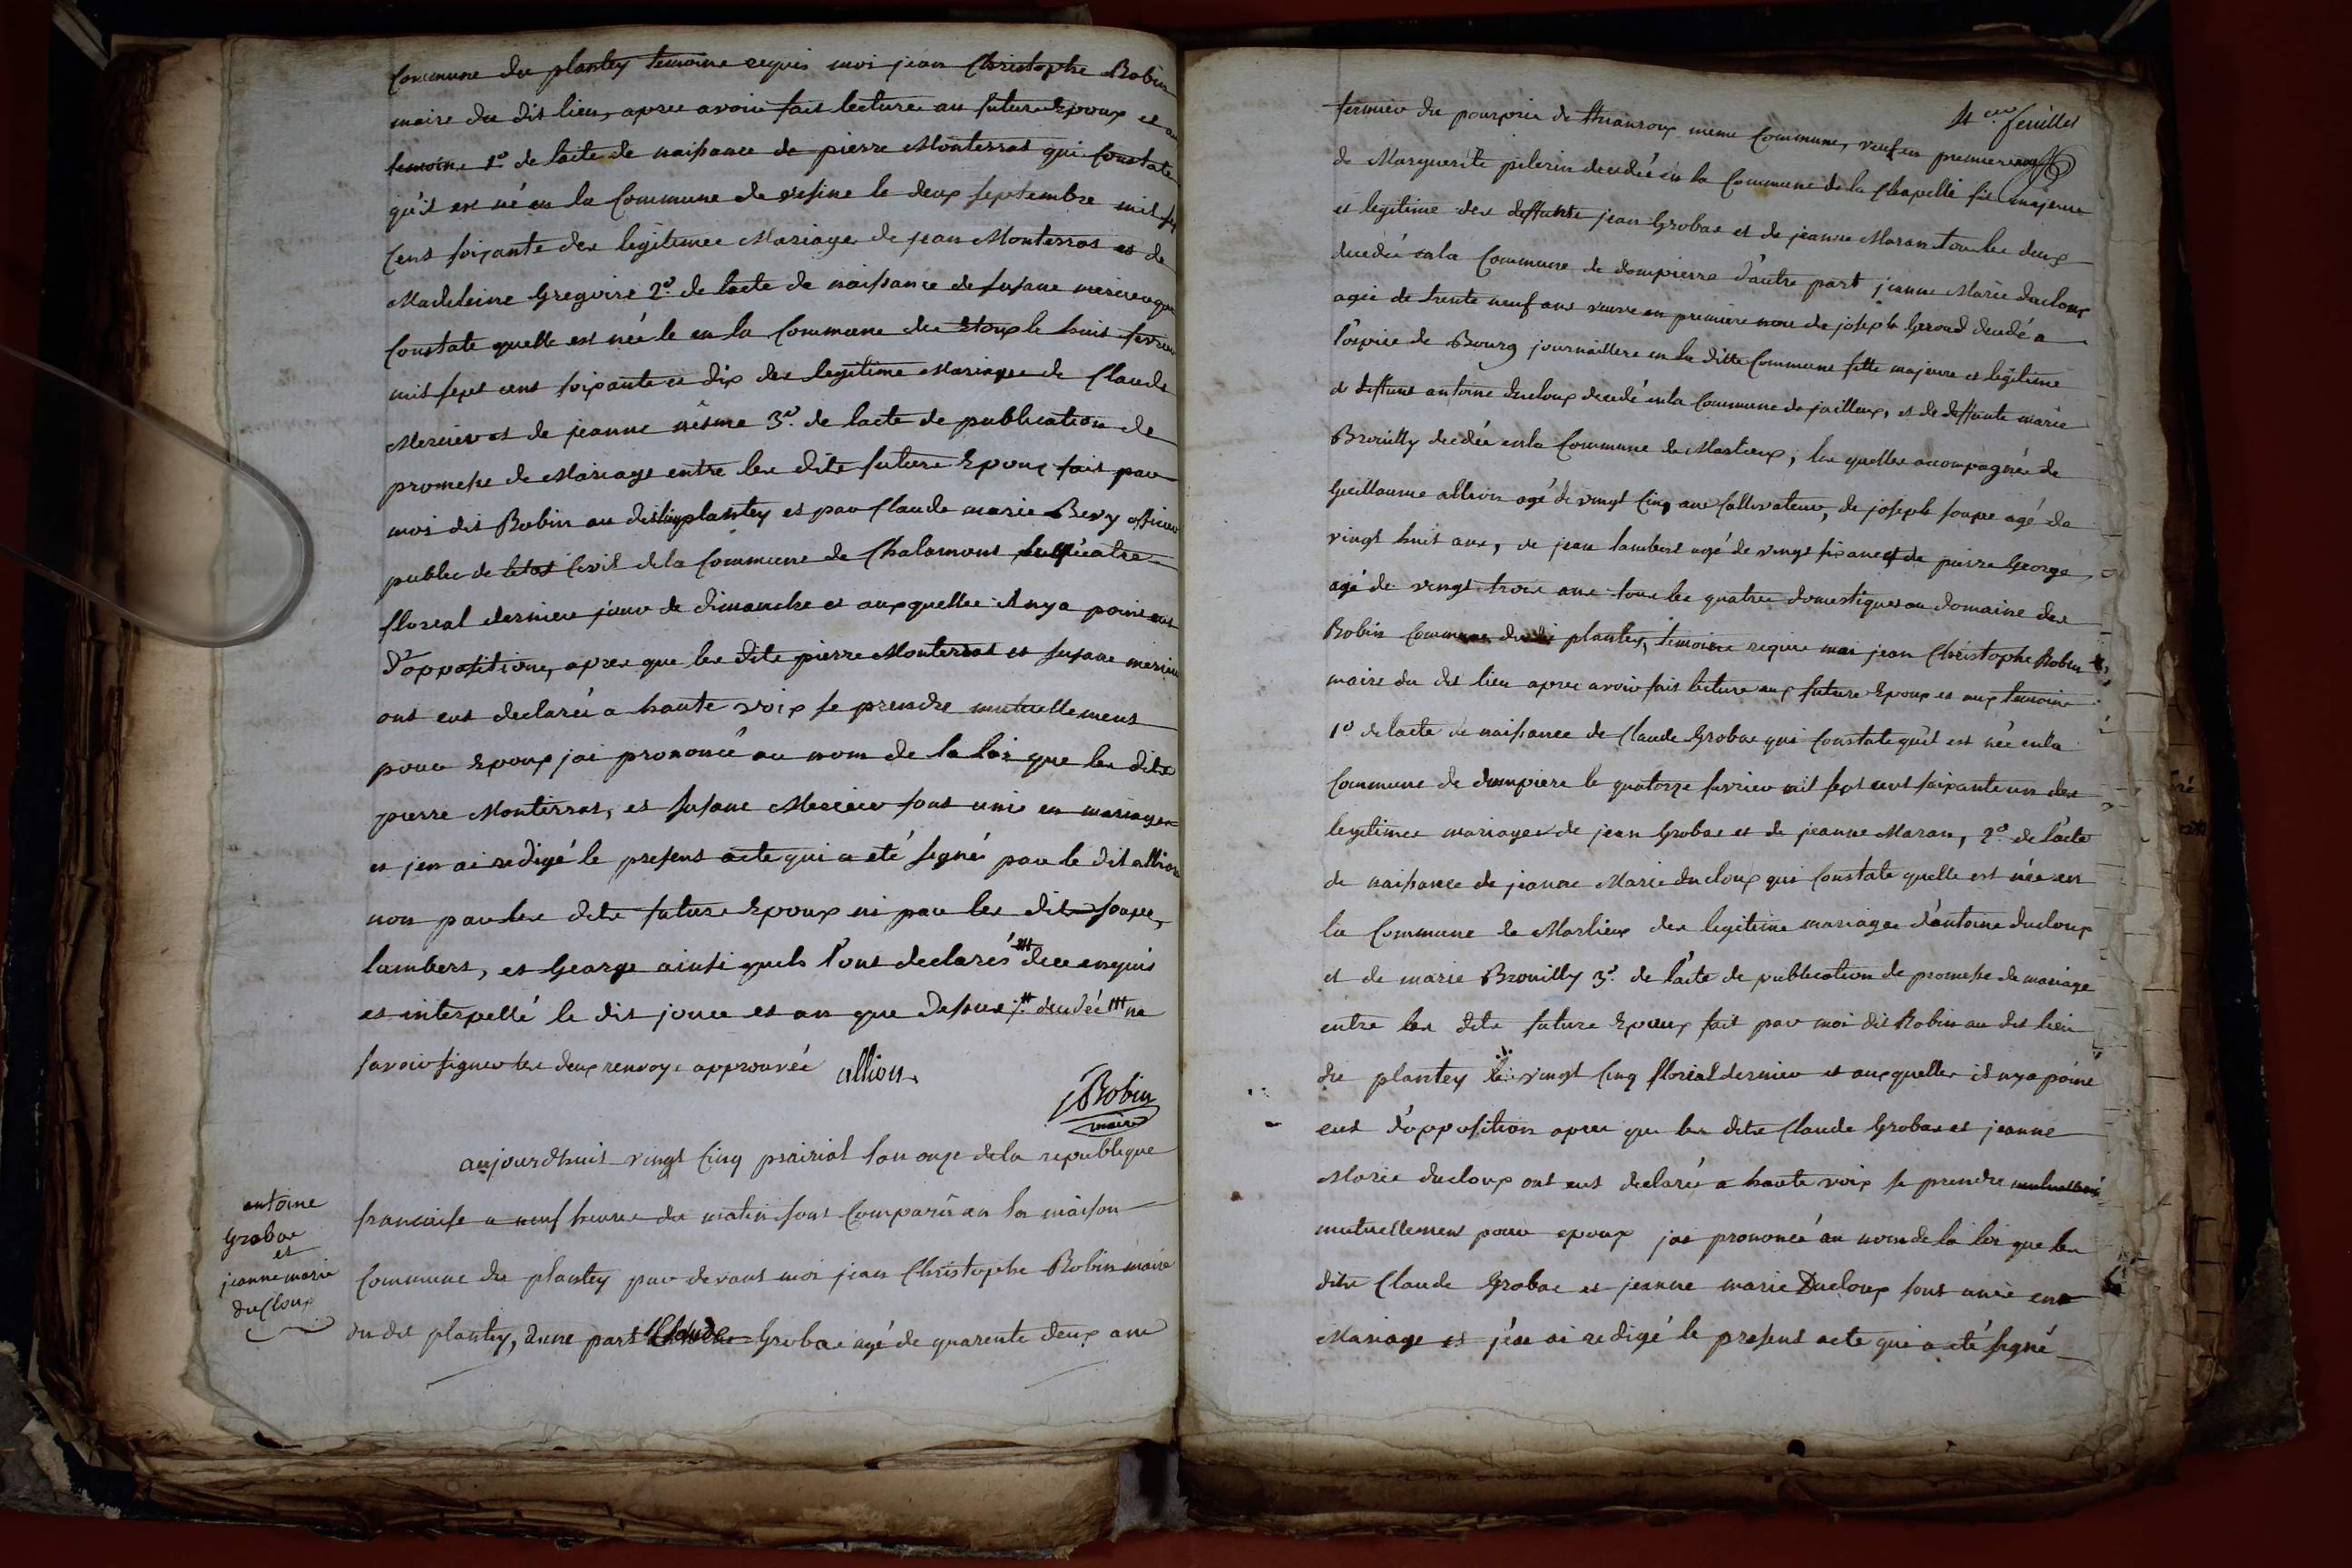 Commune du plantey temoins requis moi jean Christophe Robin
maire du dit lieu, apres avoir fait lecture au futurs Epoux et au
temoins 1º de lacte de naissance de pierre Monterrat qui Constate
qu'il est né en la Commune de le deux septembre mil sept
Cent soixante des legitimes Mariages de jean Monterrat et de
Madeleine Gregoire 2º de lacte de naissance de susane mercier qui
Constate quelle est née le en la Commune du le huit fevrier
mil sept cent soixante et dix des legitime Mariages de Claude
Mercier et de jeanne 3º de lacte de publication de
promesse de Mariage entre les dits futurs Epoux fait par
moi dit Robin au dit lieu plantey et par Claude marie Bevy officier
public de letat Civil de la Commune de Chalamont quatre
floreal dernier jour de dimanche et auxquelles il ny a point eut
d'oppositions, apres que les dits pierre Monterrat et susane mercier
ont eut declarés a haute voix se prendre mutuellement
pour Epoux jai prononcé au nom de la loi que les dits
pierre Monterrat, et susane Mercier sont unis en mariages
et jen ai redigé le present acte qui a eté signé par le dit allion
non par les dits futurs Epoux ni par les dits soupe,
lambert, et George ainsi quils l'ont declarés de ce enquis
et interpellé le dit jour et an que dessus decedé ne
savoir signer les deux renvoys approuvés allion
Robin
maire
aujourdhuit vingt Cinq prairial lan onze de la republique
antoine
Grobas
et
jeanne marie
duCloux
francaise a neuf heures du matin sont Comparus en la maison
Commune du plantey par devant moi jean Christophe Robin maire
du dit plantey, dune part Claude Grobas agé de quarente deux ans
4eme feuillet
fermier du pourprix de même Commune, veuf en premiere noce
de Marguerite pelerin decedée en la Commune de la Chapelle fils majeur
et legitime des deffunts jean Grobas et de jeanne Maran tous les deux
decedés en la Commune de dompierre d'autre part jeanne Marie ducloux
agée de trente neuf ans veuve en premiere noce de joseph Geroud decedé a
l'ospice de Bourg journailliere en la ditte Commune fille majeure et legitime
de deffunt antoine ducloux decedé en la Commune de jailleux, et de deffunte marie
Brouilly decedée en la Commune de Marlieux, les quelles accompagnés de
Guillaume allion agé de vingt Cinq ans Cultivateur, de joseph soupe agé de
vingt huit ans, de jean lambert agé de vingt six ans et de pierre George
agé de vingt trois ans tous les quatres domestiques au domaine des
Robin Commune du dit plantey, temoins requis moi jean Christophe Robin
maire du dit lieu apres avoir fait lecture aux futurs Epoux et aux temoins
1º de lacte de naissance de Claude Grobas qui Constate qu'il est né en la
Commune de dompiere le quatorze fevrier mil sept cent soixante un des
legitimes mariages de jean Grobas et de jeanne Maran, 2º de l'acte
de naissance de jeanne Marie ducloux qui Constate quelle est née en
la Commune de Marlieux des legitime mariages d'antoine ducloux
et de marie Brouilly 3º de l'acte de publication de promesse de mariage
entre les dits futurs Epoux fait par moi dit Robin au dit lieu
du plantey le vingt Cinq floreal dernier et auxquelles il ny a point
eut d'opposition apres que les dits Claude Grobas et jeanne
Marie ducloux ont eut declarés a haute voix se prendre
mutuellement pour epoux jai prononcé au nom de la loi que les
dits Claude Grobas et jeanne marie Ducloux sont unis en
Mariage et j'en ai redigé le present acte qui a eté signé